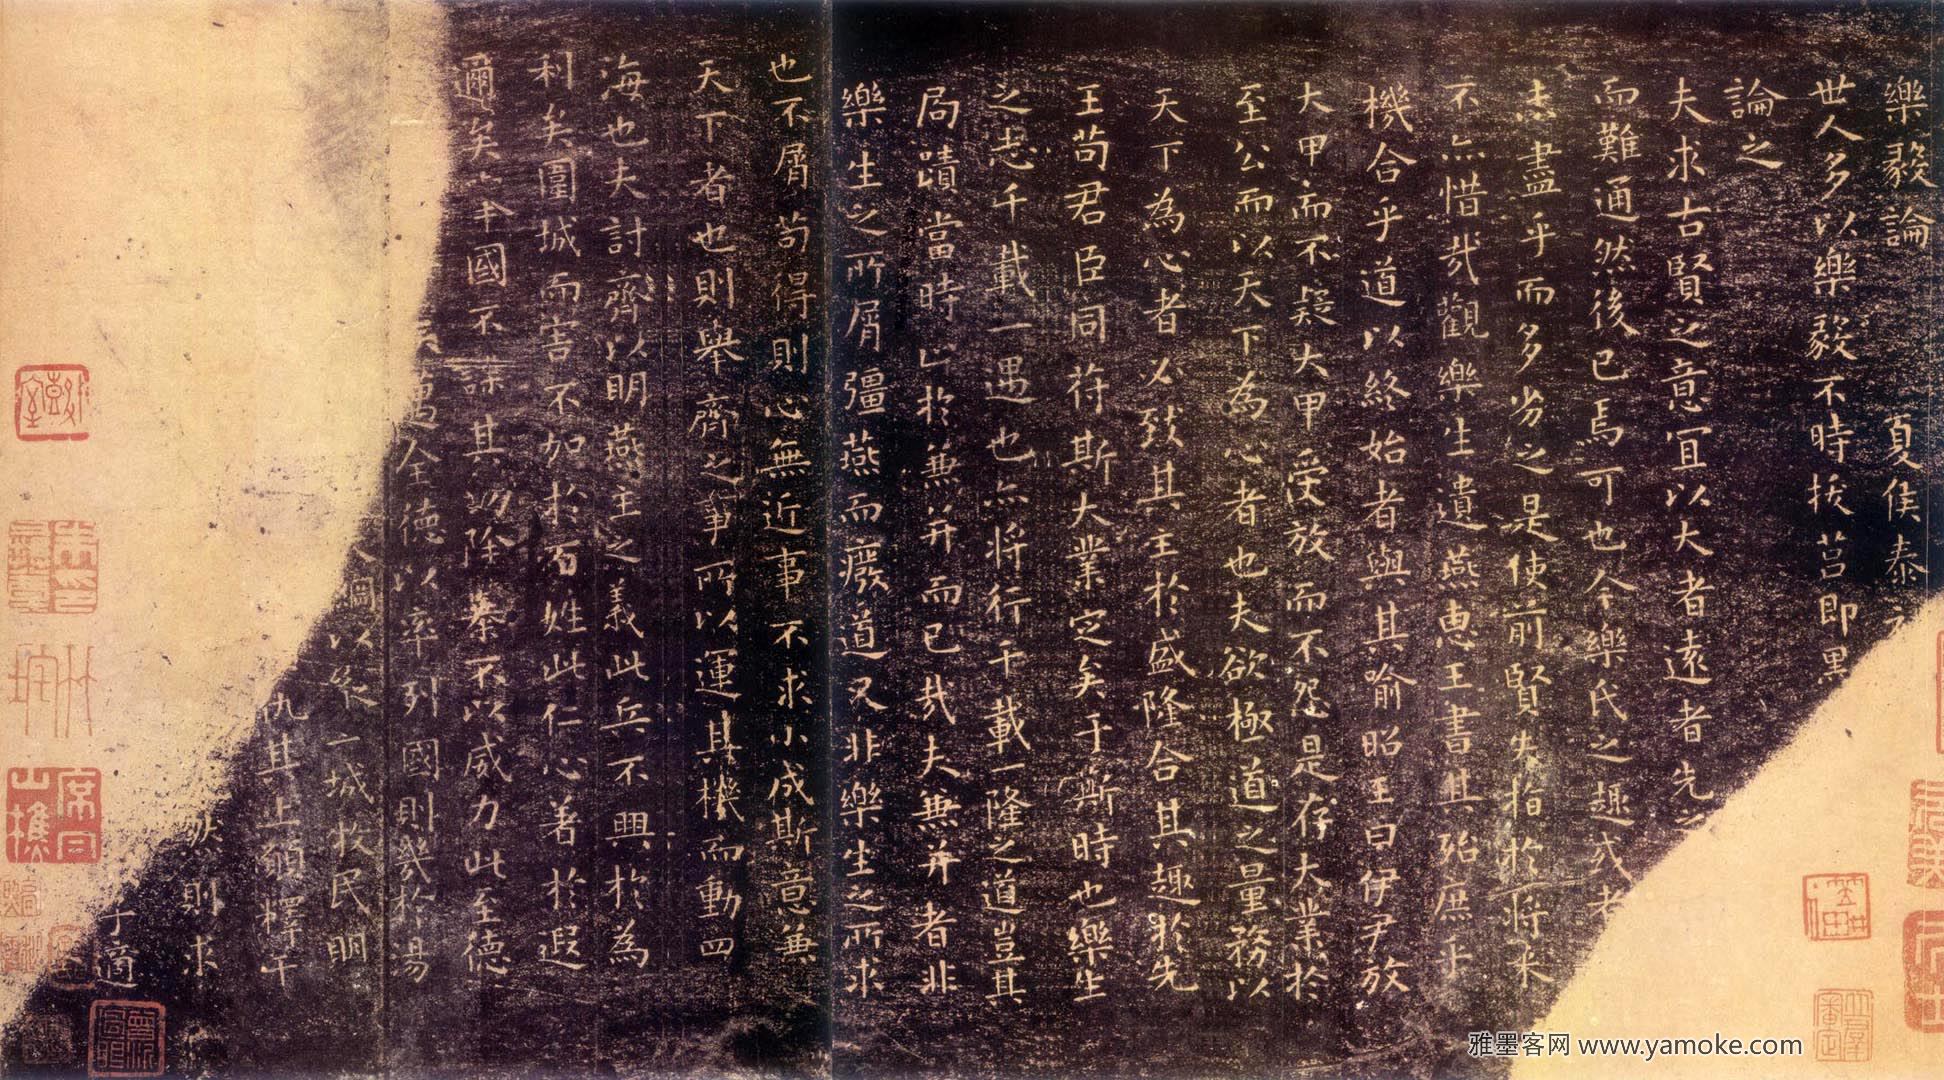 樂毅論 夏侯泰
世人多以樂毅不時拔莒即墨
論之
夫求古賢之意宜以大者遠者先之
而難通然後已焉可也今樂氏之趣或者
盡乎而多劣之是使前賢失指於將来
不亦惜哉觀樂生遺燕惠王書其殆庶乎
機合乎道以終始者與其喻昭王曰伊尹放
大甲而不疑大甲受放而不怨是存大業於
至公而以天下為心者也夫欲極道之量務以
天下為心者必致其主於盛隆合其趣於先
王苟君臣同符斯大業定矣于斯時也樂生
之志千載一遇也亦将行千載一隆之道豈其
局蹟當時止於兼并而已哉夫兼并者非
樂生之所屑彊燕而廢道又非樂生之所求
也不屑苟得則心無近事不求小成斯意兼
天下者也則舉齊之事所以運其機而動四
海也夫討齊以明燕主之義此兵不興於為
利矣圍城而害不加於百姓此仁心著於遐
邇矣举國不謀其功除暴不以威力此至德
全德以率列國則幾於湯
以縱二城牧民明
仇其上願釋干
則求
于適
雅墨客网 www.yamoke.com